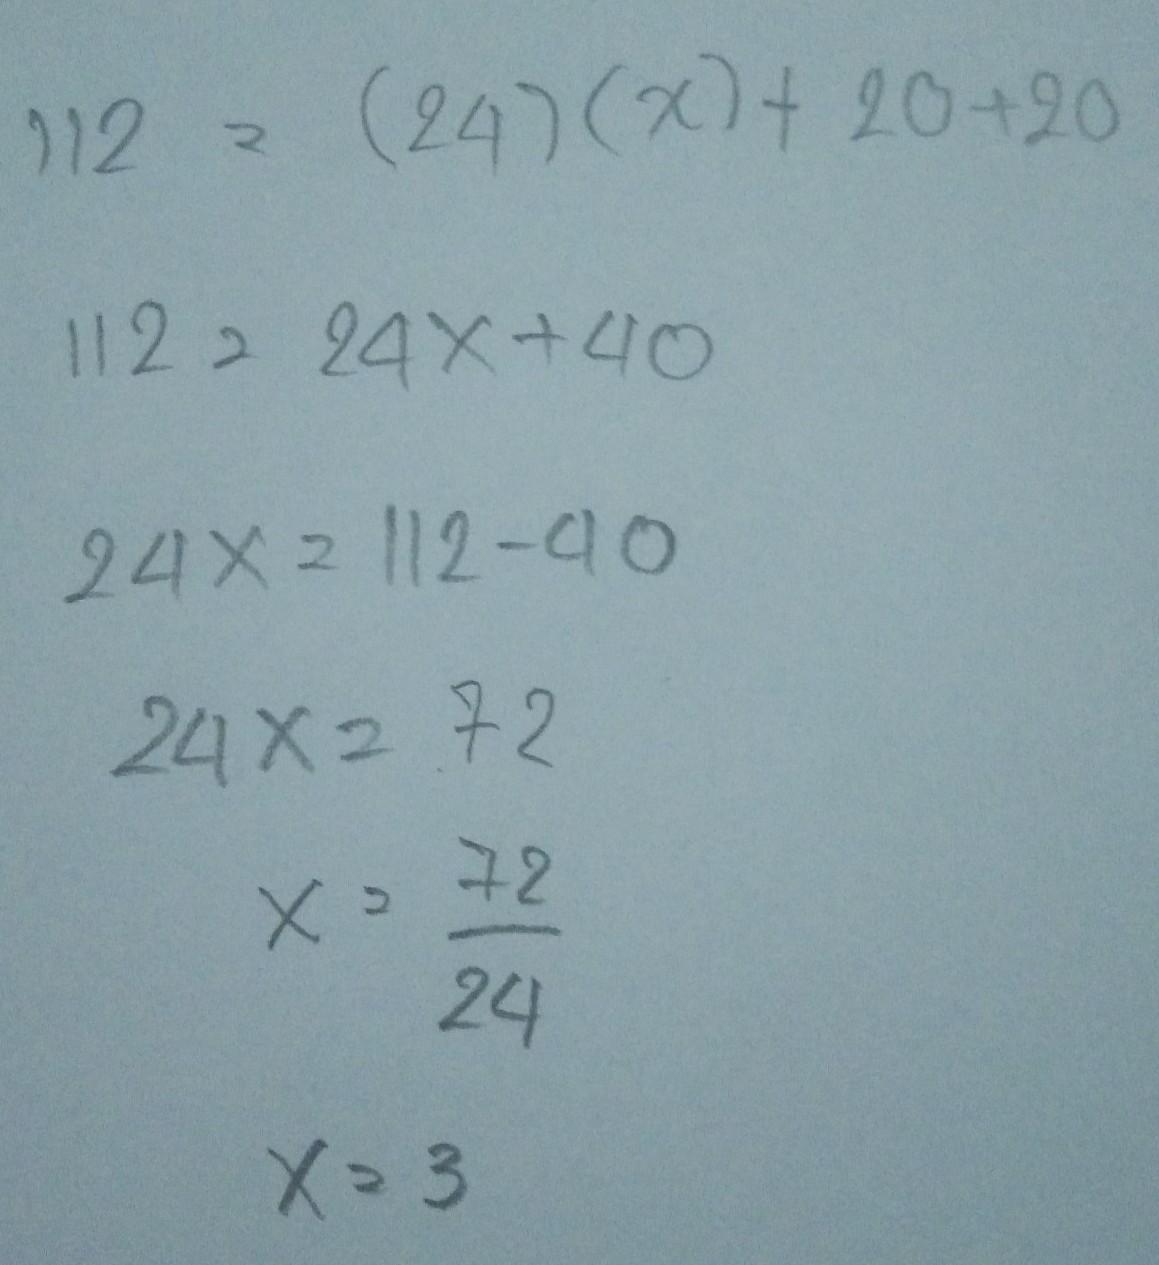 112 = (24)(x) + 20+20
112 = 24x+40
24x = 112-40
24x = 72
x = 72/24
x = 3